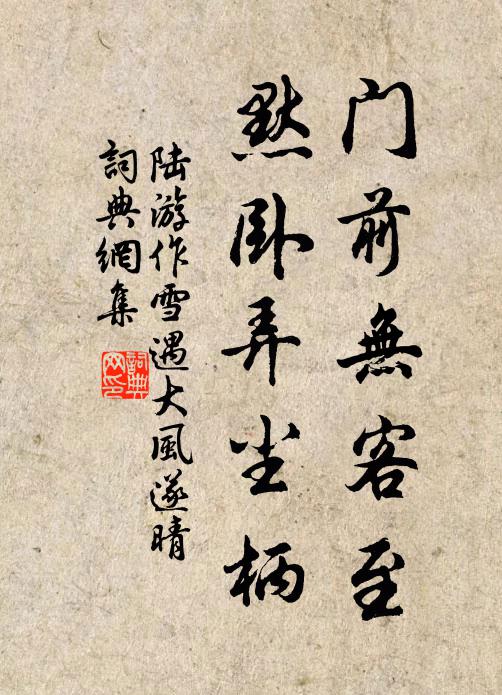 门前無客至
默卧弄尘柄
陆游作雪遇大風遂晴
詞典網集
詞典网印